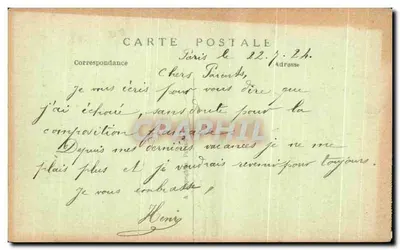 CARTE POSTALE
Correspondance
Adresse
Paris le 22. 7. 24.
Chers Parents,
Je vous écris pour vous dire que
j'ai échoué, sans doute pour la
composition
Depuis mes dernières vacances je ne me
plais plus et je voudrais revenir pour toujours.
Je vous embrasse,
Henri